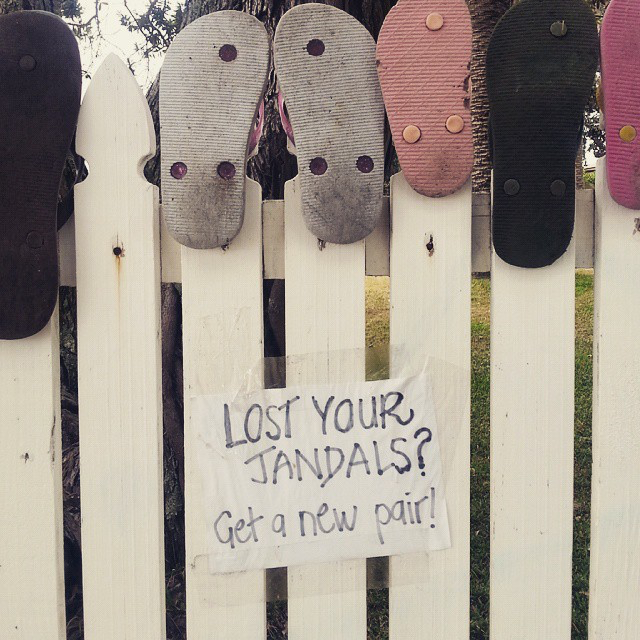 LOST YOUR
JANDALS?
Get a new pair!